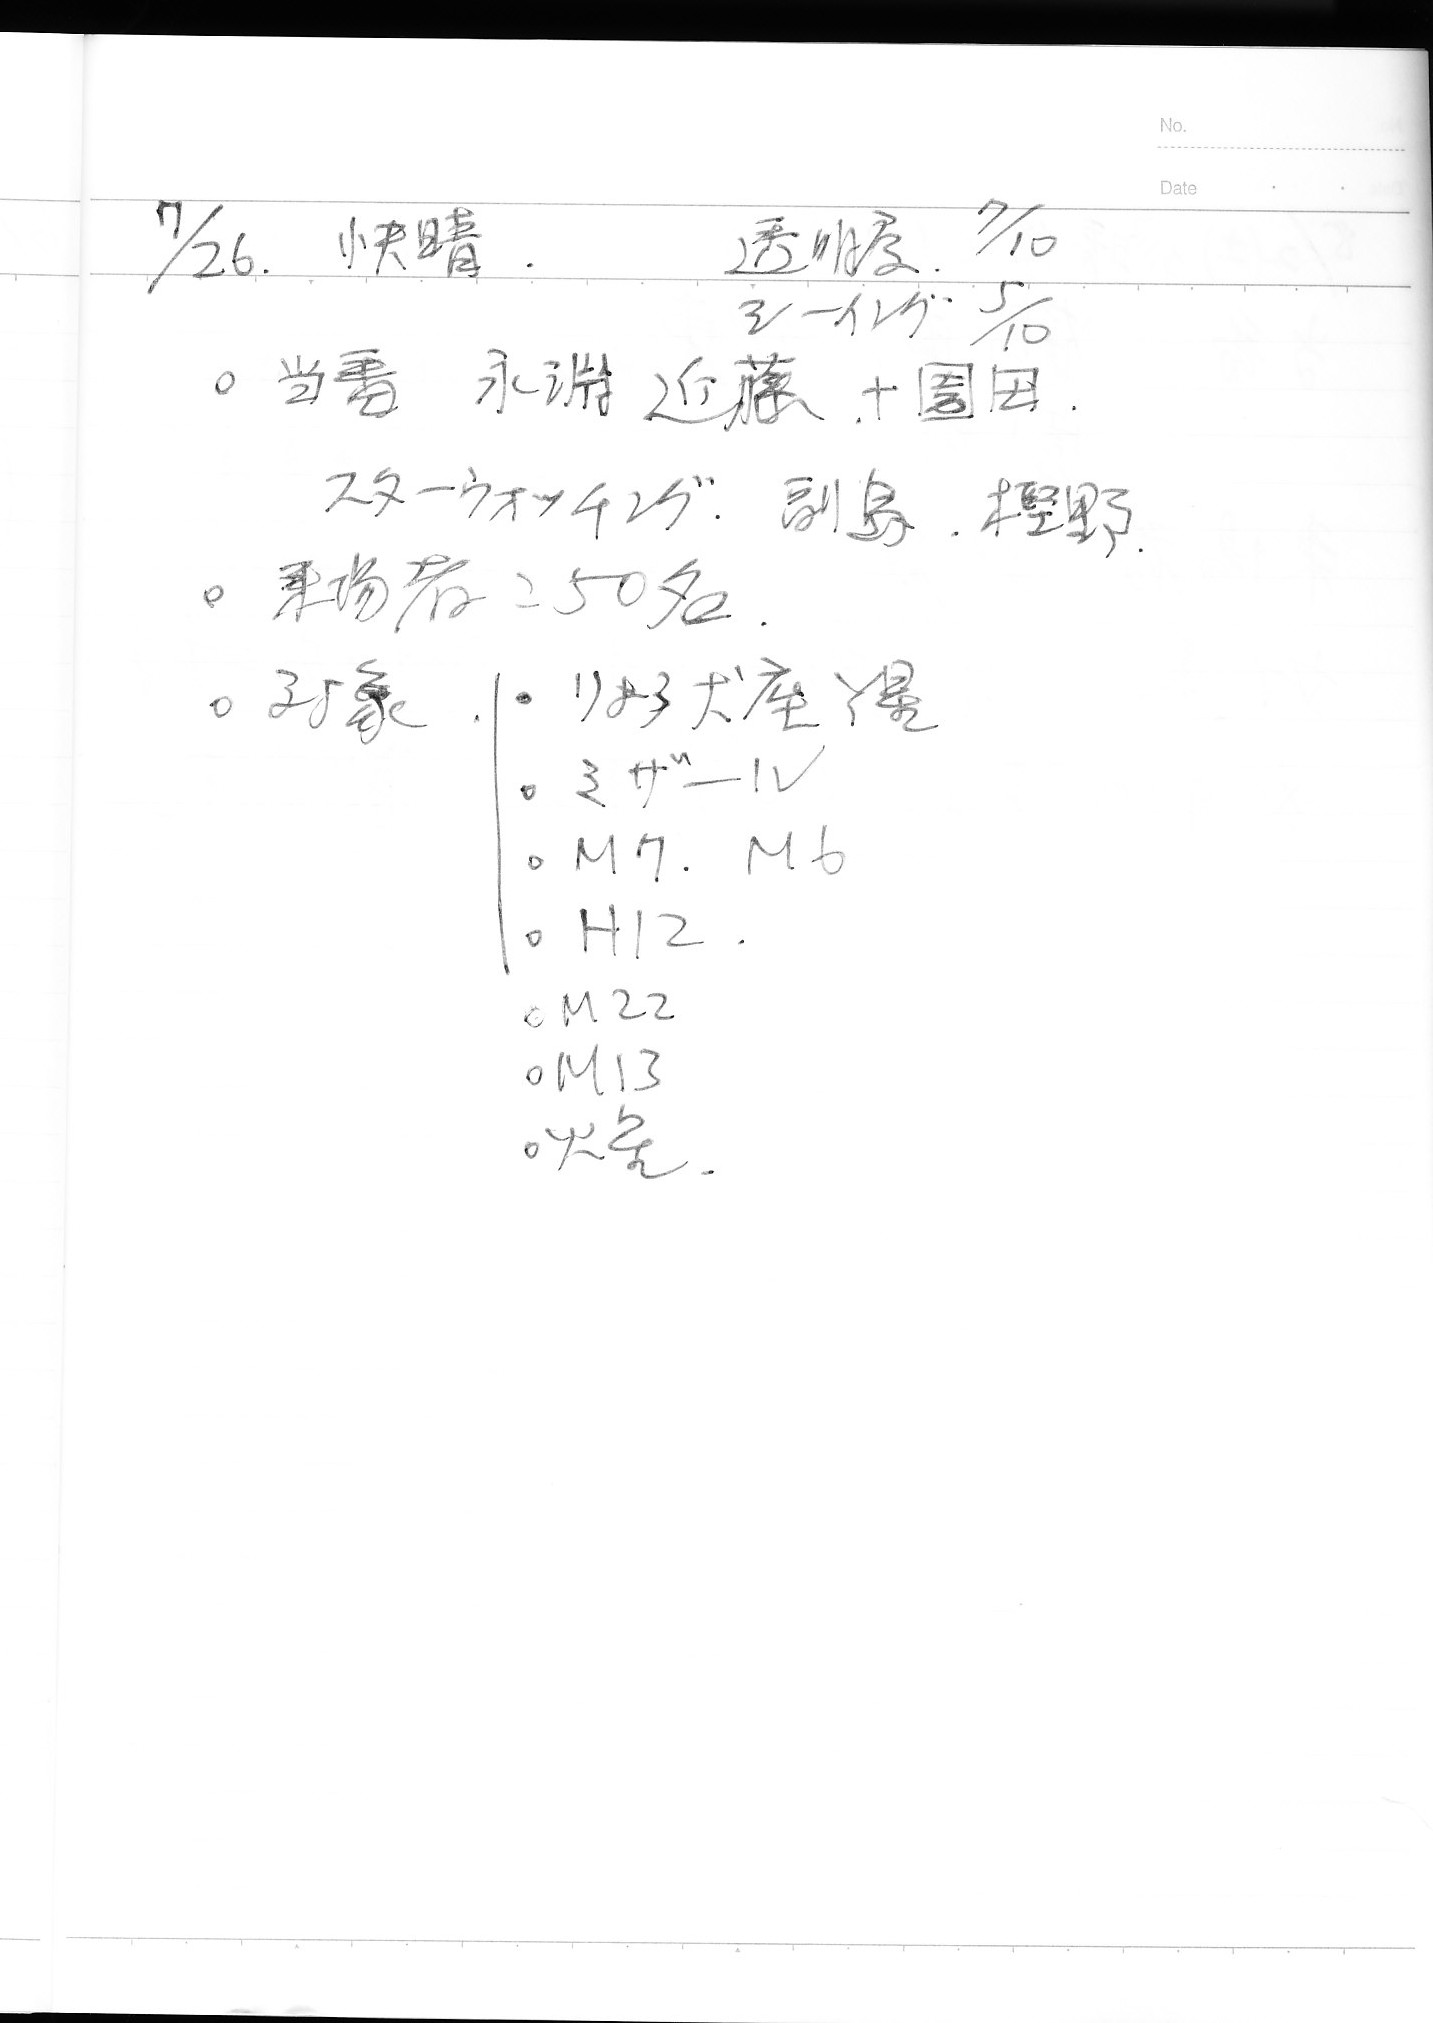 No.
Date
7/26. 快晴. 透明度. 7/10
シーイング 5/10
○ 当番 永淵 近藤.+園田.
スターウォッチング. 副島. 樫野.
○ 来場者=50名.
○ 対象. ・りょう犬座 Y星
○ ミザール
○ M7. M6
○ H12.
○ M22
○ M13
○ 火星.